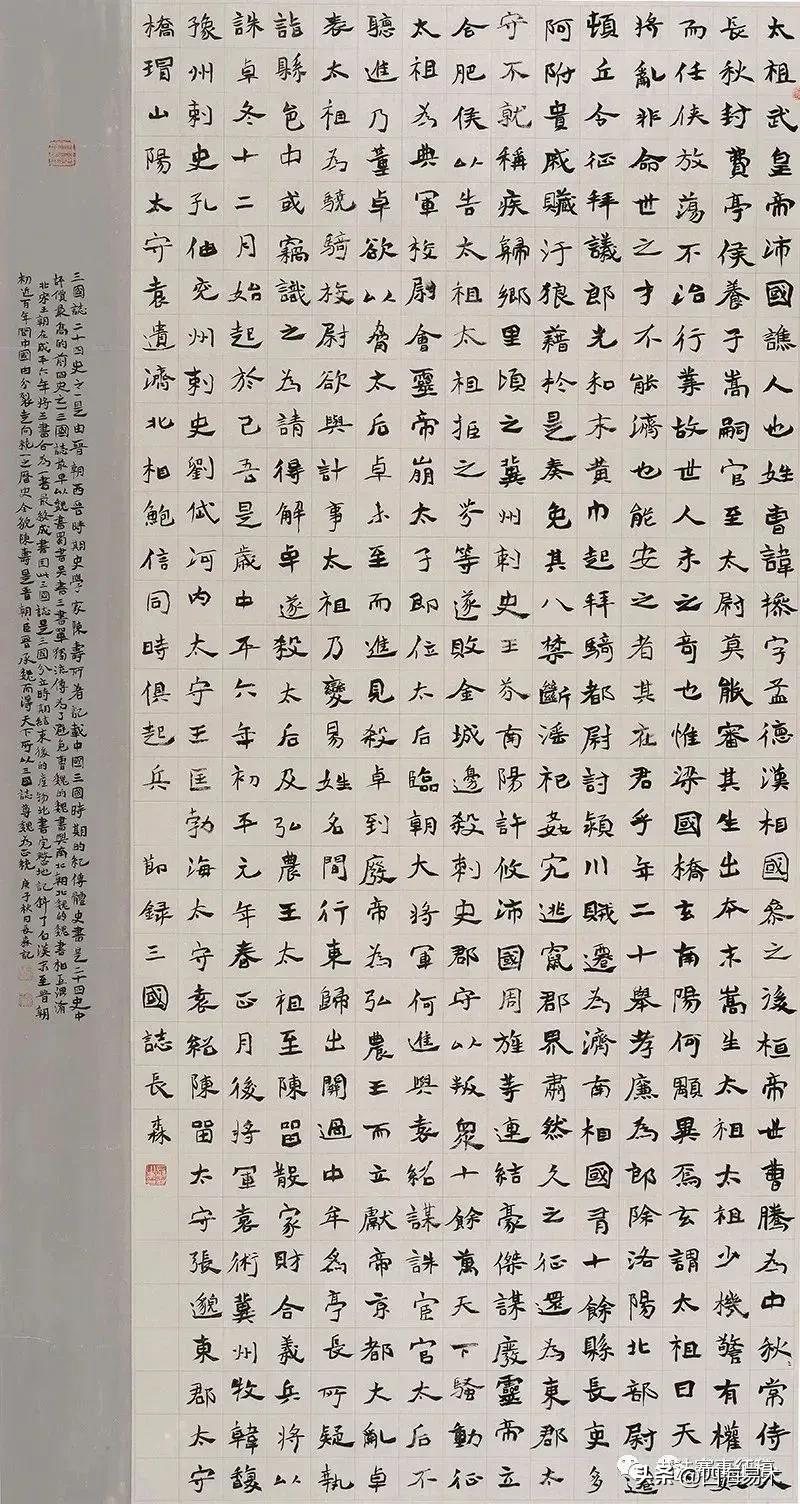 太祖武皇帝沛國譙人也姓曹諱操字孟德漢相國叅之後桓帝世曹騰為中秋常侍大
長秋封費亭侯養子嵩嗣官至太尉莫能審其生出本末嵩生太祖太祖少機警有權數
而任俠放蕩不治行業故世人未之奇也惟梁國橋玄南陽何顒異焉玄謂太祖曰天
將亂非命世之才不能濟也能安之者其在君乎年二十舉孝廉為郎除洛陽北部尉遷
頓丘令征拜議郎光和末黃巾起拜騎都尉討潁川賊遷為濟南相國有十餘縣長吏多
阿附貴戚贓汙狼藉於是奏免其八禁斷淫祀姦宄逃竄郡界肅然久之征還為東郡太
守不就稱疾歸鄉里頃之冀州刺史王芬南陽許攸沛國周旌等連結豪傑謀廢靈帝立
合肥侯以告太祖太祖拒之芬等遂敗金城邊殺刺史郡守以叛眾十餘萬天下騷動征
太祖為典軍校尉會靈帝崩太子即位太后臨朝大將軍何進與袁紹謀誅宦官太后不
聽進乃董卓欲以脅太后卓未至而進見殺卓到廢帝為弘農王而立獻帝京都大亂卓
表太祖為驍騎校尉欲與計事太祖乃變易姓名間行東歸出關過中牟為亭長所疑執
詣縣邑中或竊識之為請得解卓遂殺太后及弘農王太祖至陳留散家財合義兵將以
誅卓冬十二月始起於己吾是歲中平六年初平元年春正月後將軍袁術冀州牧韓馥
豫州刺史孔伷兗州刺史劉岱河內太守王匡勃海太守袁紹陳留太守張邈東郡太守
橋瑁山陽太守袁遺濟北相鮑信同時俱起兵 節録三國誌長森
三國誌二十四史之一是由晉朝西晉時期史學家陳壽所著記載中國三國時期的紀傳體史書是二十四史中
評價最高的前四史之一三國誌最早以魏書蜀書吳書三書單獨流傳為了避免曹魏的魏書與南北朝北魏的魏書相互混淆
北宋王朝在咸平六年將三書合為一書最終成書因此三國誌是三國分立時期結束後的產物此書完整地記錄了自漢末至晉朝
初近百年間中國由分裂走向統一之歷史全貌陳壽是晉朝臣晉承魏而得天下所以三國誌尊魏為正統 庚子秋月長森記
书法赛事征稿
头条@四海易木